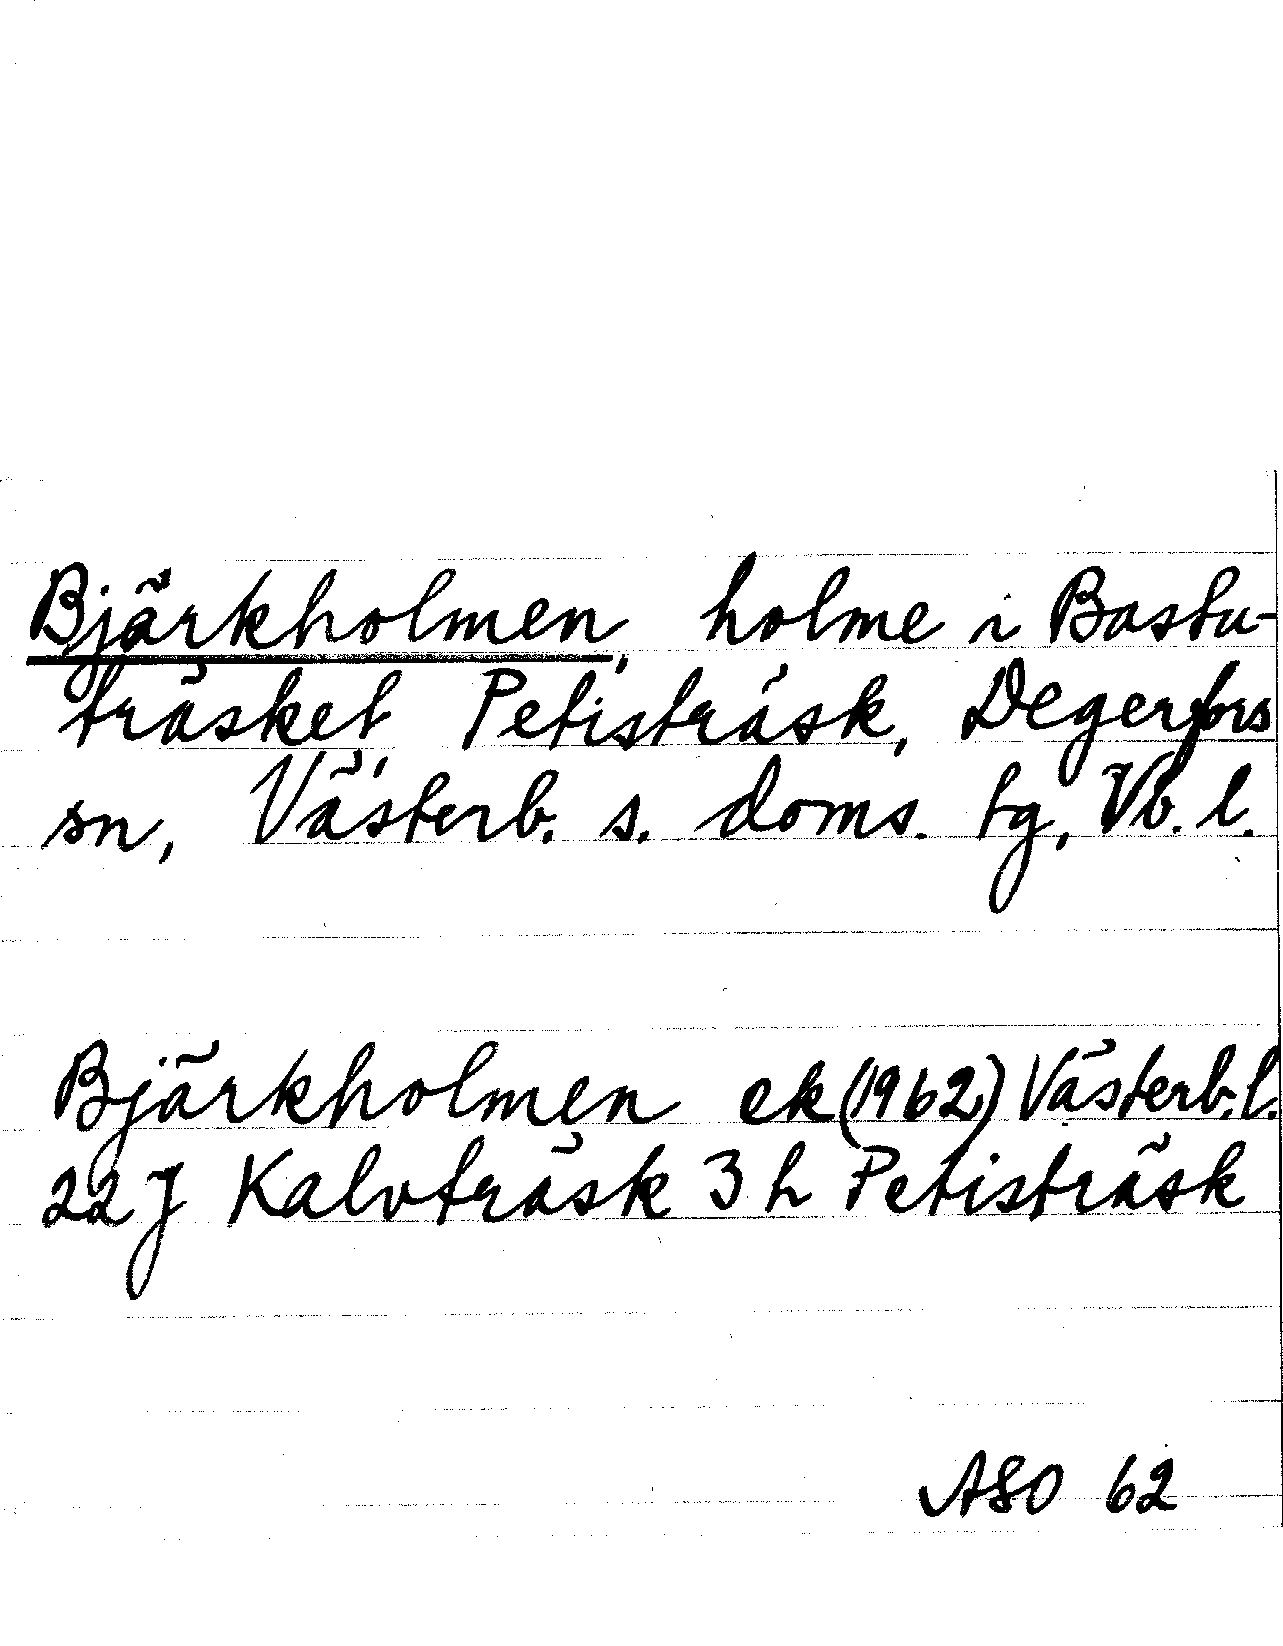 Bjärkholmen, holme i Bastu-
träsket, Petisträsk, Degerfors
sn, Västerb. s. doms. tg, Vb. l.
Bjärkholmen ek (1962) Västerb. l.
22 J Kalvträsk 3 h Petisträsk
ASO 62